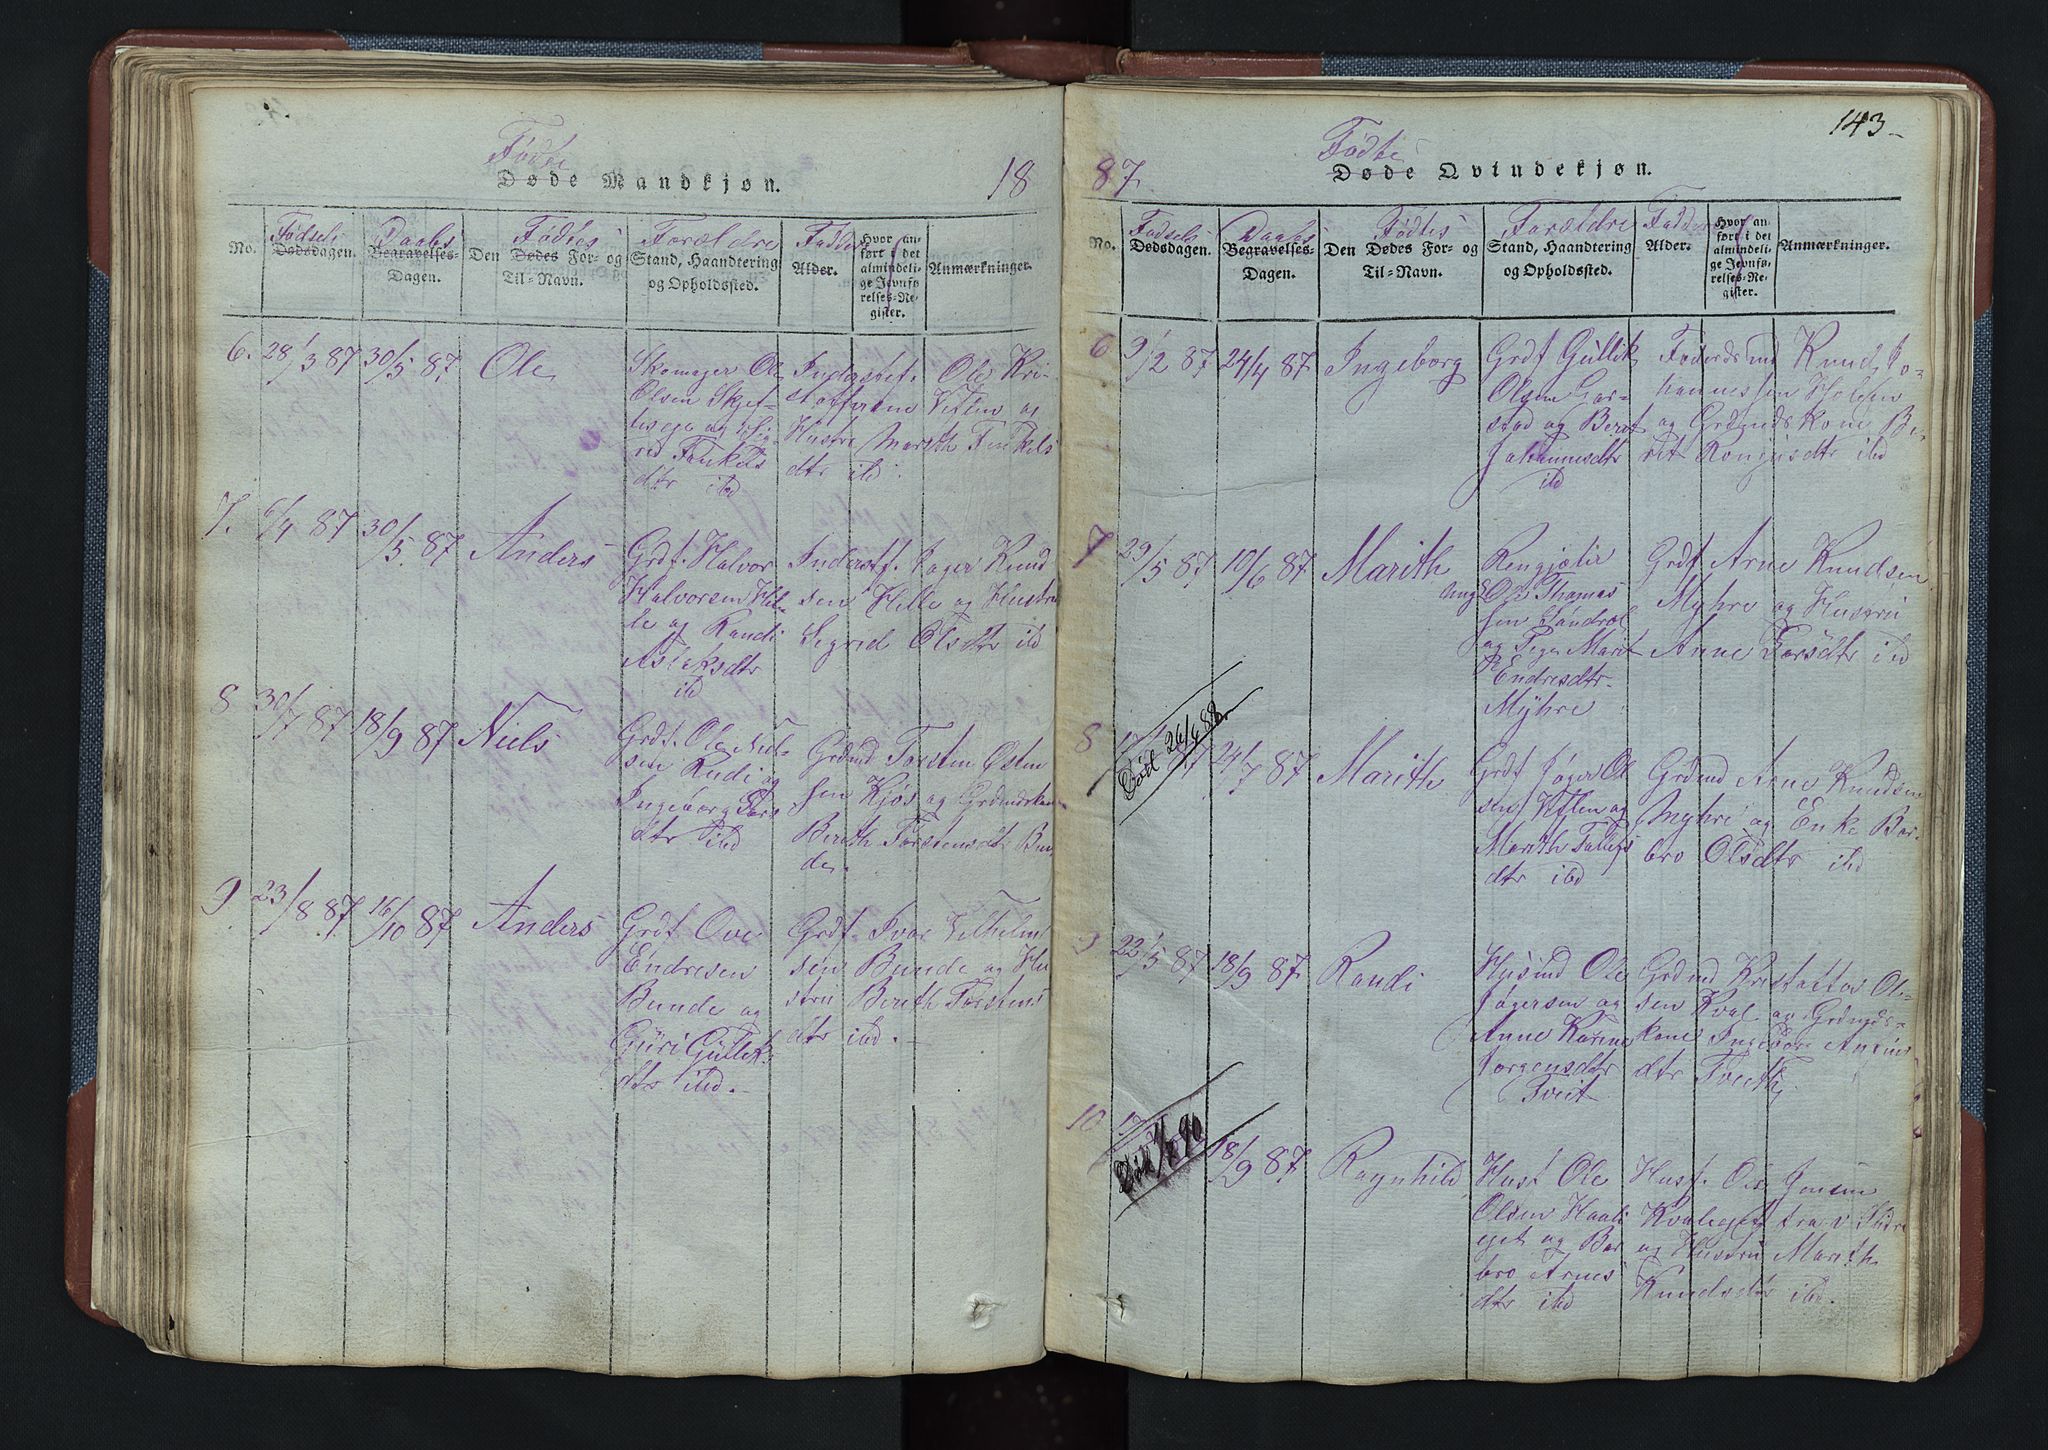 Fødte
Døde Mandkjøn.
18
No.
Fødsels
Dødsdagen.
Daabs
Begravelses-
Dagen.
Fødtes
Den Dødes For- og
Til-Navn.
Forældre
Stand, Haandtering
og Opholdssted.
Fadder
Alder.
Hvor an-
ført i det
almindeli-
ge Jevnfø-
relses-Re-
gister.
Anmærkninger.
6. 28/3 87 30/5 87 Ole
Skomager Ole
Olsen
og Sig-
rid
dtr ibd
Ole Kri-
stoffersen Veflen og
Hustru Marith
dtr ibd.
7. 6/4 87 30/5 87 Anders
Grdf. Halvor
Halvorsen Hil-
le og Randi
Aslaksdtr
ibd
Inderstf. Jager Knud
sen Hille og Hustru
Sigrid Olsdtr ibd
8 30/7 87 18/9 87 Niels
Grdf. Ole Niel-
sen Rudi og
Ingeborg Tors
dtr ibd
Grdmd Torsten Østen
sen Kjøs og Grdmdskone
Berith Torstensdtr Bun-
de.
9 23/8 87 16/10 87 Anders
Grdf Ove
Endresen
Bunde og
Guri Gullik
dtr ibd.
Grdf. Ivar Vilhelm
sen Bunde og Hu
stru Berith Torstens
dtr ibd.
143
87.
Fødte
Døde Qvindekjøn.
No.
Fødsels
Dødsdagen.
Daabs
Begravelses-
Dagen.
Fødtes
Den Dødes For- og
Til-Navn.
Forældre
Stand, Haandtering
og Opholdssted.
Fadder
Alder.
Hvor an-
ført i det
almindeli-
ge Jevnfø-
relses-Re-
gister.
Anmærkninger.
6 9/2 87 24/4 87 Ingeborg
Grdf Gullik
Olsen Gar-
stad og Berit
Johannesdtr
ibd
Knud Jo-
hannessen
og Grdmdskone Be-
rit ibd
7 29/5 87 10/6 87 Marith
Ungk Ole Thomas
sen
og Pige Marit
Endresdtr
Myhre
Grdf Arne Knudsen
Myhre og Hustru
Anne Torsdtr ibd
8 24/7 87 Marith
Død 26/4 88.
Grdf Jøger Ol
sen Veflen og
Marith
dtr ibd
Grdmd Arne Knudsen
Myhre og Enke Bar-
bro Olsdtr ibd
9 22/5 87 18/9 87 Randi
Husmd Ole
Jøgersen og
Anne Karine
Jørgensdtr
Tveit
Grdmd Kristoffer Ol-
sen Kval og Grdmds-
kone
dtr Tveit.
10 17/ 18/9 87 Ragnhild
Husf Ole
Olsen
og Bar
bro Arnes
dtr ibd
Husf. Ole Jensen
og Hustru Marith
Knudsdtr ibd.